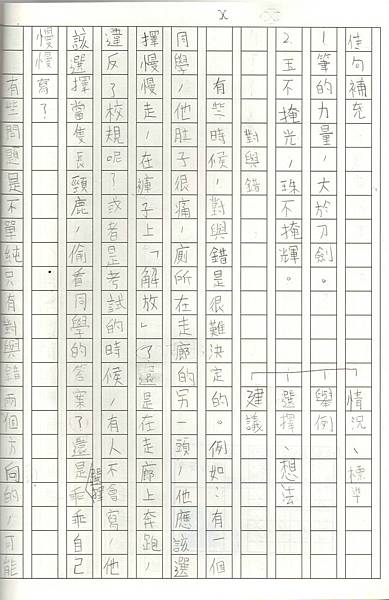 佳句補充
1筆的力量，大於刀劍。
2.玉不掩光，珠不掩輝。
情況、標準
舉例
選擇、想法
建議
對與錯
有些時候，對與錯是很難決定的。例如：有一個
同學，他肚子很痛，廁所在走廊的另一頭，他應該選
擇慢慢走，在褲子上「解放」了還是在走廊上奔跑，
違反了校規呢？或者是考試的時候，有人不會寫，他
該選擇當隻長頸鹿，偷看同學的答案？還是選擇乖乖自己
慢慢寫？
有些問題是不單純只有對與錯兩個方向的，可能